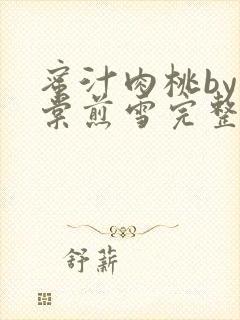 蜜汁肉桃by
棠煎雪完整
舒薪